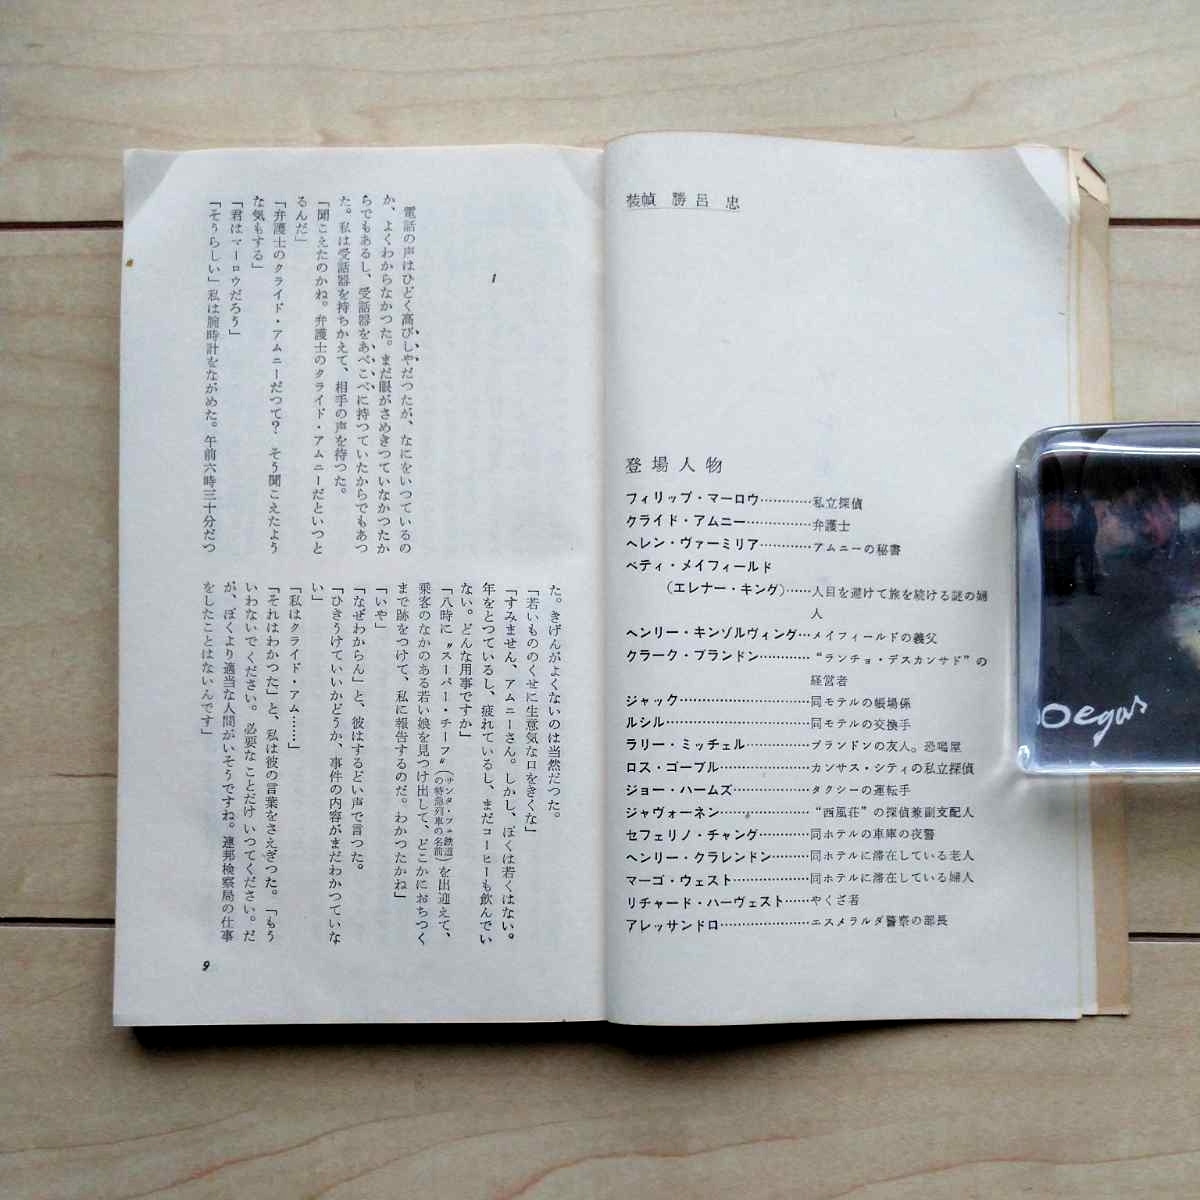 装幀 勝呂 忠
登場人物
フィリップ・マーロウ…………私立探偵
クライド・アムニー……………弁護士
ヘレン・ヴァーミリア…………アムニーの秘書
ベティ・メイフィールド
(エレナー・キング)……人目を避けて旅を続ける謎の婦
人
ヘンリー・キンゾルヴィング…メイフィールドの義父
クラーク・ブランドン…………“ランチョ・デスカンサド”の
経営者
ジャック…………………………同モテルの帳場係
ルシル……………………………同モテルの交換手
ラリー・ミッチェル……………ブランドンの友人。恐喝屋
ロス・ゴーブル…………………カンサス・シティの私立探偵
ジョー・ハームズ………………タクシーの運転手
ジャヴォーネン…………………“西風荘”の探偵兼副支配人
セフェリノ・チャング…………同ホテルの車庫の夜警
ヘンリー・クラレンドン………同ホテルに滞在している老人
マーゴ・ウェスト………………同ホテルに滞在している婦人
リチャード・ハーヴェスト……やくざ者
アレッサンドロ…………………エスメラルダ警察の部長
1
電話の声はひどく高びしやだつたが、なにをいつているの
か、よくわからなかつた。まだ眼がさめきつていなかつたか
らでもあるし、受話器をあべこべに持つていたからでもあつ
た。私は受話器を持ちかえて、相手の声を待つた。
「聞こえたのかね。弁護士のクライド・アムニーだといつと
るんだ」
「弁護士のクライド・アムニーだつて? そう聞こえたよう
な気もする」
「君はマーロウだろう」
「そうらしい」私は腕時計をながめた。午前六時三十分だつ
た。きげんがよくないのは当然だつた。
「若いもののくせに生意気な口をきくな」
「すみません、アムニーさん。しかし、ぼくは若くはない。
年をとつているし、疲れているし、まだコーヒーも飲んでい
ない。どんな用事ですか」
「八時に〝スーパー・チーフ〟(サンタ・フェ鉄道の特急列車の名前)を出迎えて、
乗客のなかのある若い娘を見つけ出して、どこかにおちつく
まで跡をつけて、私に報告するのだ。わかつたかね」
「いや」
「なぜわからん」と、彼はするどい声で言つた。
「ひきうけていいかどうか、事件の内容がまだわかつていな
い」
「私はクライド・アム……」
「それはわかつた」と、私は彼の言葉をさえぎつた。「もう
いわないでください。必要なことだけいつてください。だ
が、ぼくより適当な人間がいそうですね。連邦検察局の仕事
をしたことはないんです」
9
Degas